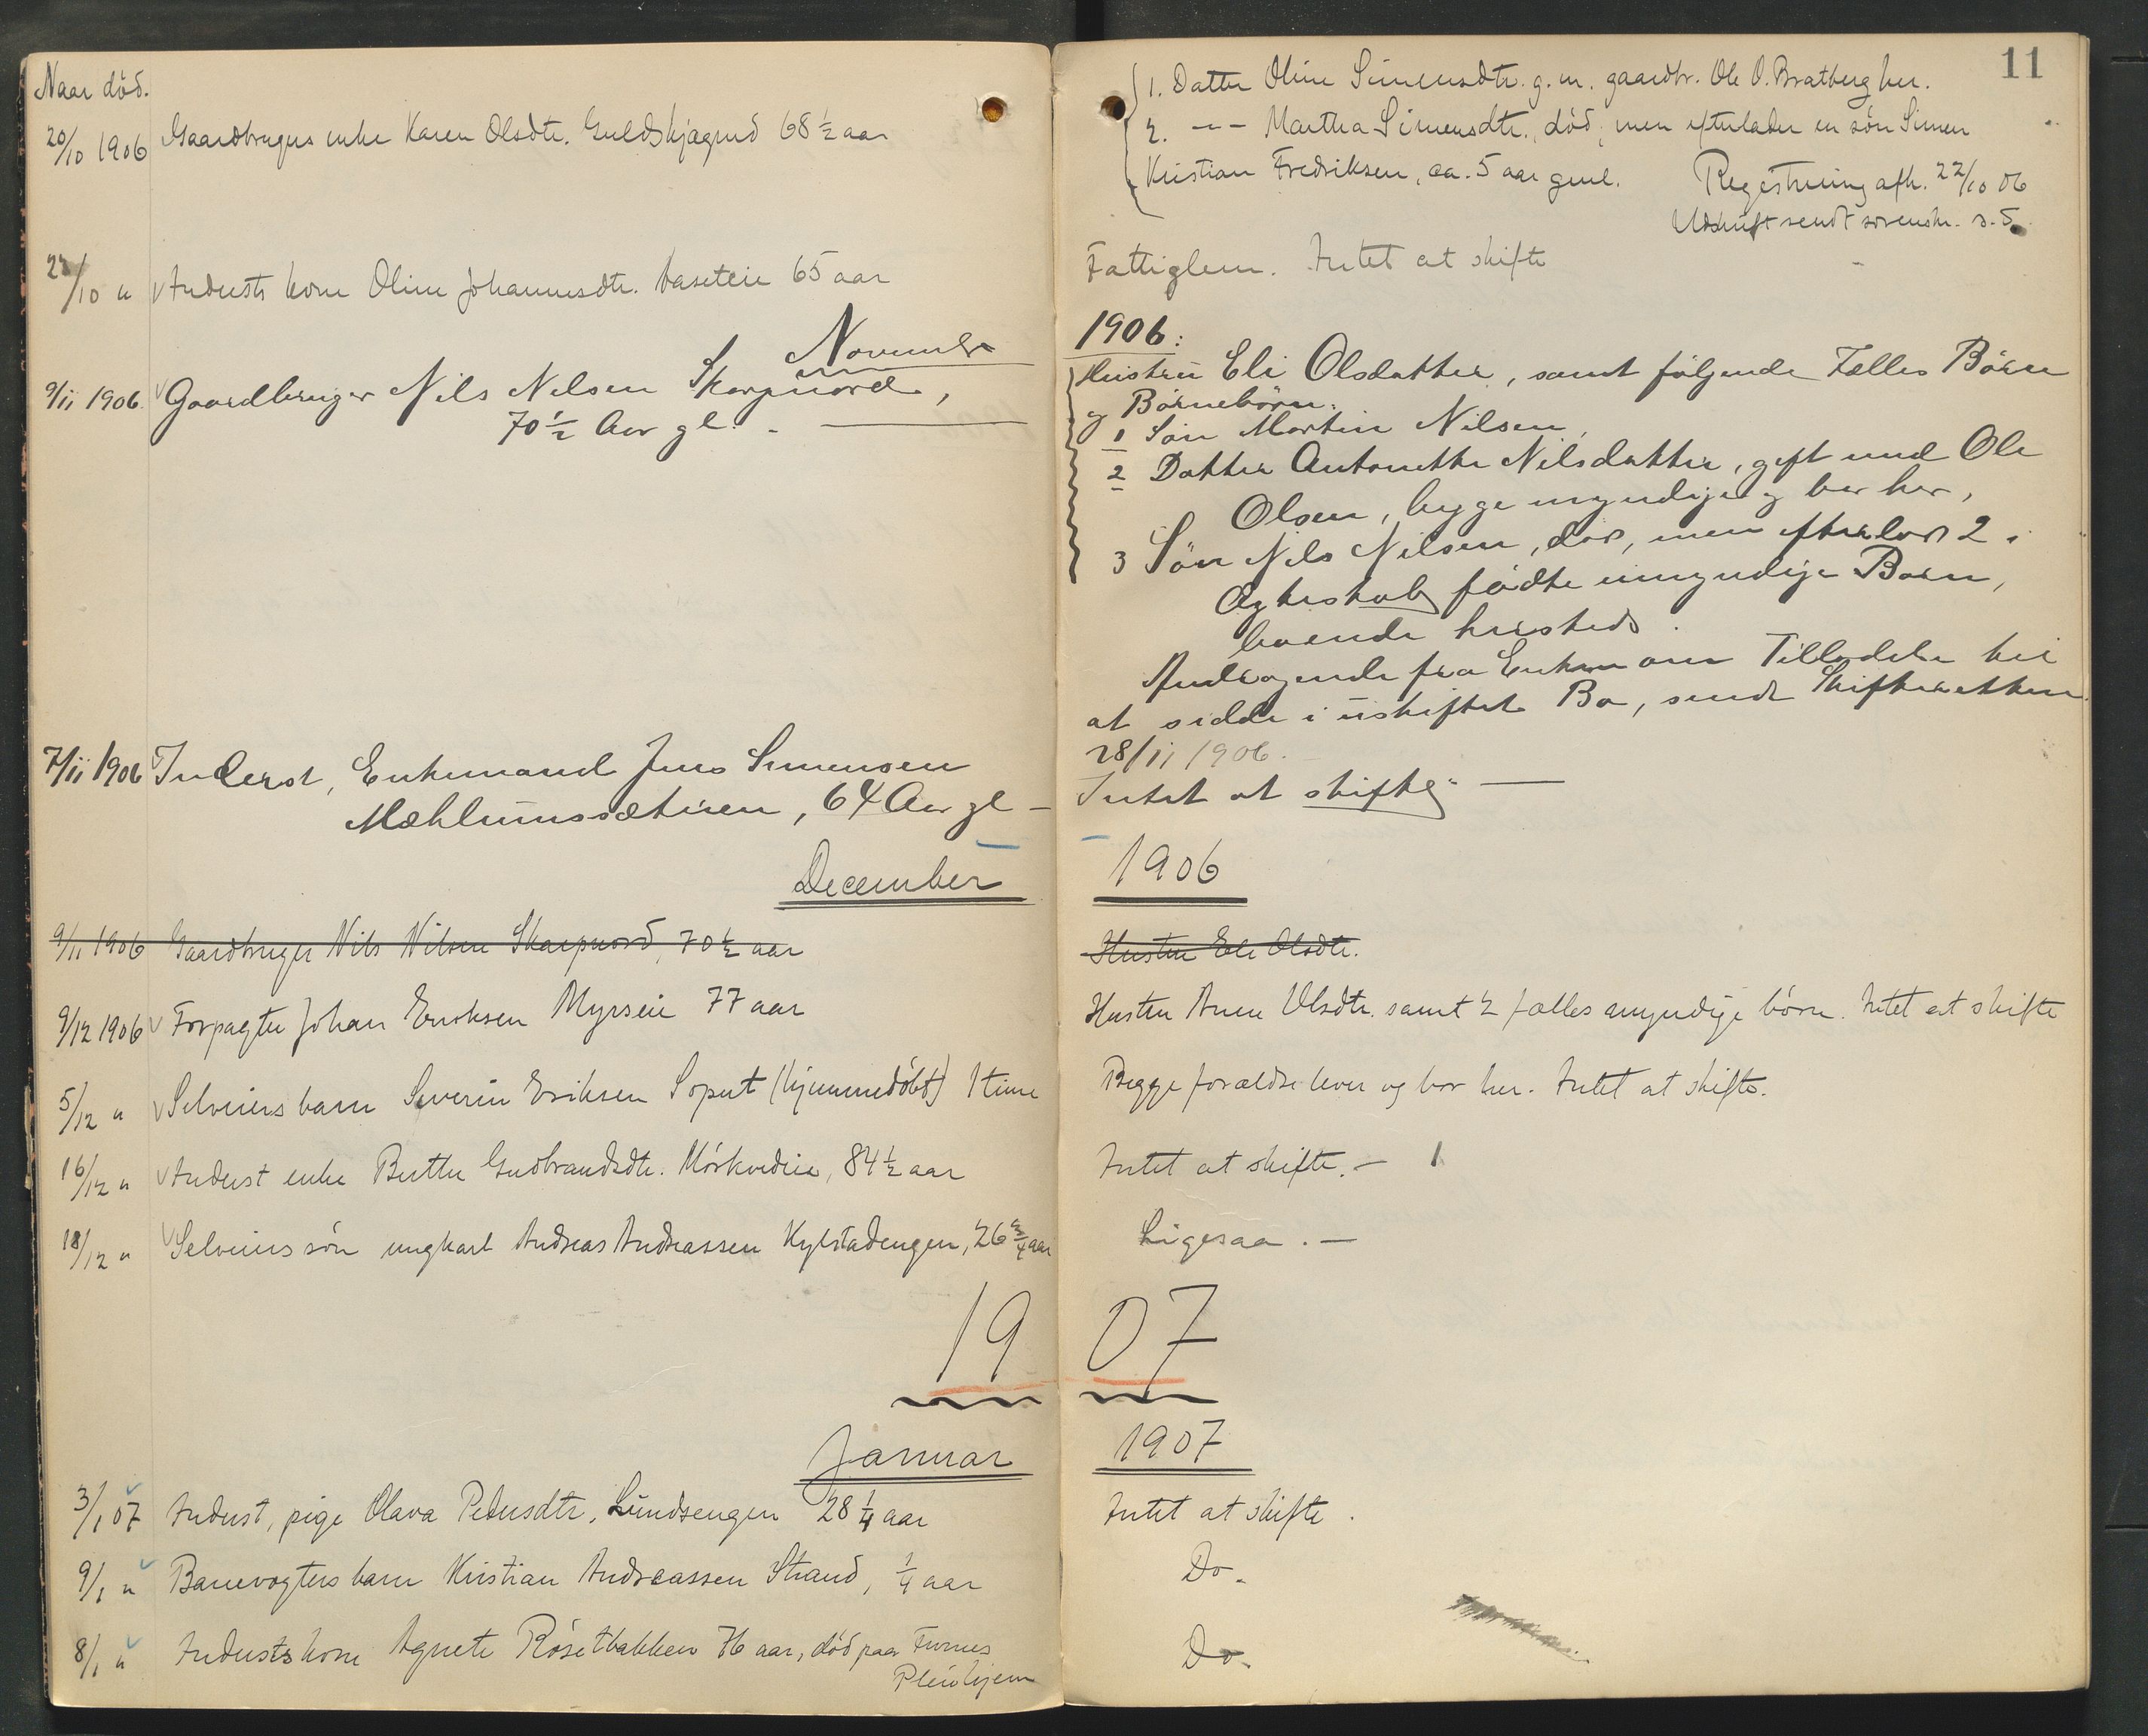 Naar död.
20/10 1906 Gaardbrugers enke Karen Olsdtr. Guldskjægrud 68 1/2 aar
22/10 " Indersts kone Oline Johannesdtr. 65 aar
November
9/11 1906. Gaardbruger Nils Nilsen Skarpnord,
70 1/2 Aar gl. -
7/11 1906 Inderst, Enkemand Jens Simensen
Mæhlumssæteren, 64 Aar gl -
December
9/11 1906 Gaardbruger Nils Nilsen Skarpnord, 70 1/2 aar
9/12 1906 Forpagter Johan Eriksen Myrseie 77 aar
5/12 " Selveiers barn Severin Eriksen Soput (hjemmedöbt) 1 time
16/12 " Inderst enke Berthe Gudbrandsdtr. Mörkvedeie, 84 1/2 aar
18/12 " Selveiers sön ungkarl Andreas Andreassen Kylstadengen, 26 3/4 aar
19
Januar
3/1 07 Inderst, pige Olava Pedersdtr, Lundsengen 28 1/4 aar
9/1 " Banevogters barn Kristian Andreassen Strand, 1/4 aar
8/1 " Indersts kone Agnete Rösetbakken 76 aar, död paa Furnes
Pleiehjem
11
1. Datter Oline Simensdtr. g. m. gaardbr. Ole O. Bratberg her.
2. -- Martha Simensdtr., död, men efterlader en sön Simen
Kristian Fredriksen, ca. 5 aar gml. Registrering afh. 22/10 06
Udskrift sendt sorenskr. s. D.
Fattiglem. Intet at skifte
1906:
Hustru Eli Olsdatter, samt følgende Fælles Børn
og Børnebörn:
1 Sön Martin Nilsen,
2 Datter Antonette Nilsdatter, gift med Ole
Olsen, begge myndige og bor her,
3 Sön Nils Nilsen, død, men efterlod 2 i
Ægteskab födte umyndige Børn,
boende hersteds.
Andragende fra Enken om Tilladelse til
at sidde i uskiftet Bo, sendt Skifteretten
28/11 1906.
Intet at skifte. -
1906
Hustru Eli Olsdtr.
Hustru Anne Olsdtr. samt 2 fælles myndige börn. Intet at skifte
Begge forældre lever og bor her. Intet at skifte.
Intet at skifte. -
Ligesaa. -
07
1907
Intet at skifte.
Do.
Do.